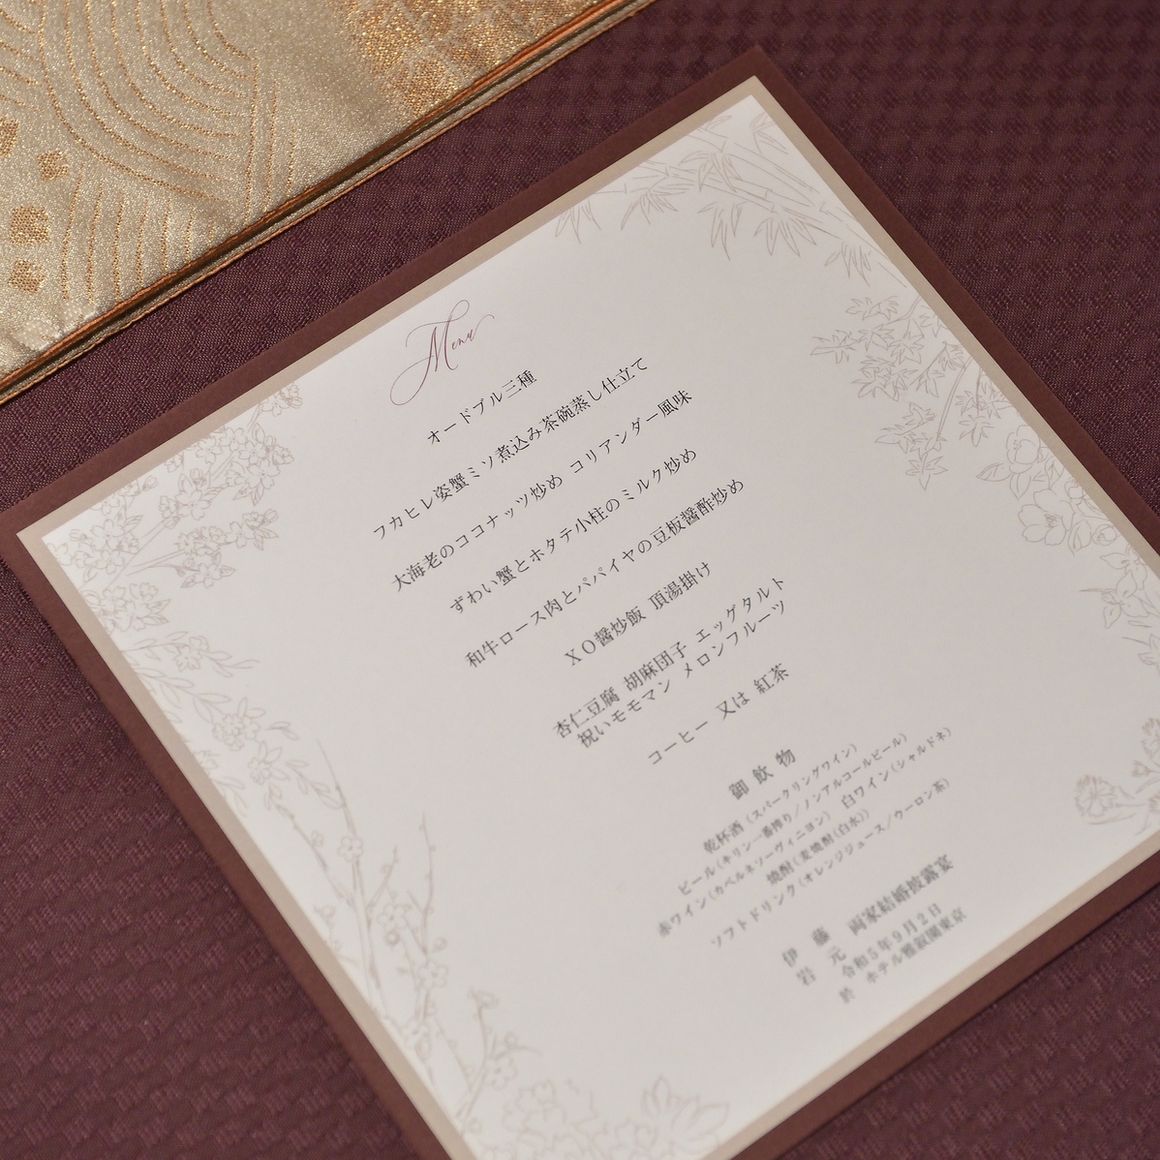 Menu
オードブル三種
フカヒレ姿蟹ミソ煮込み茶碗蒸し仕立て
大海老のココナッツ炒め コリアンダー風味
ずわい蟹とホタテ小柱のミルク炒め
和牛ロース肉とパパイヤの豆板醤酢炒め
XO醤炒飯 頂湯掛け
杏仁豆腐 胡麻団子 エッグタルト
祝いモモマン メロンフルーツ
コーヒー 又は 紅茶
御飲物
乾杯酒(スパークリングワイン)
ビール(キリン一番搾り/ノンアルコールビール)
赤ワイン(カベルネソーヴィニヨン) 白ワイン(シャルドネ)
焼酎(麦焼酎(白水))
ソフトドリンク(オレンジジュース/ウーロン茶)
伊藤 両家結婚披露宴
岩元 令和5年9月2日
於 ホテル雅叙園東京